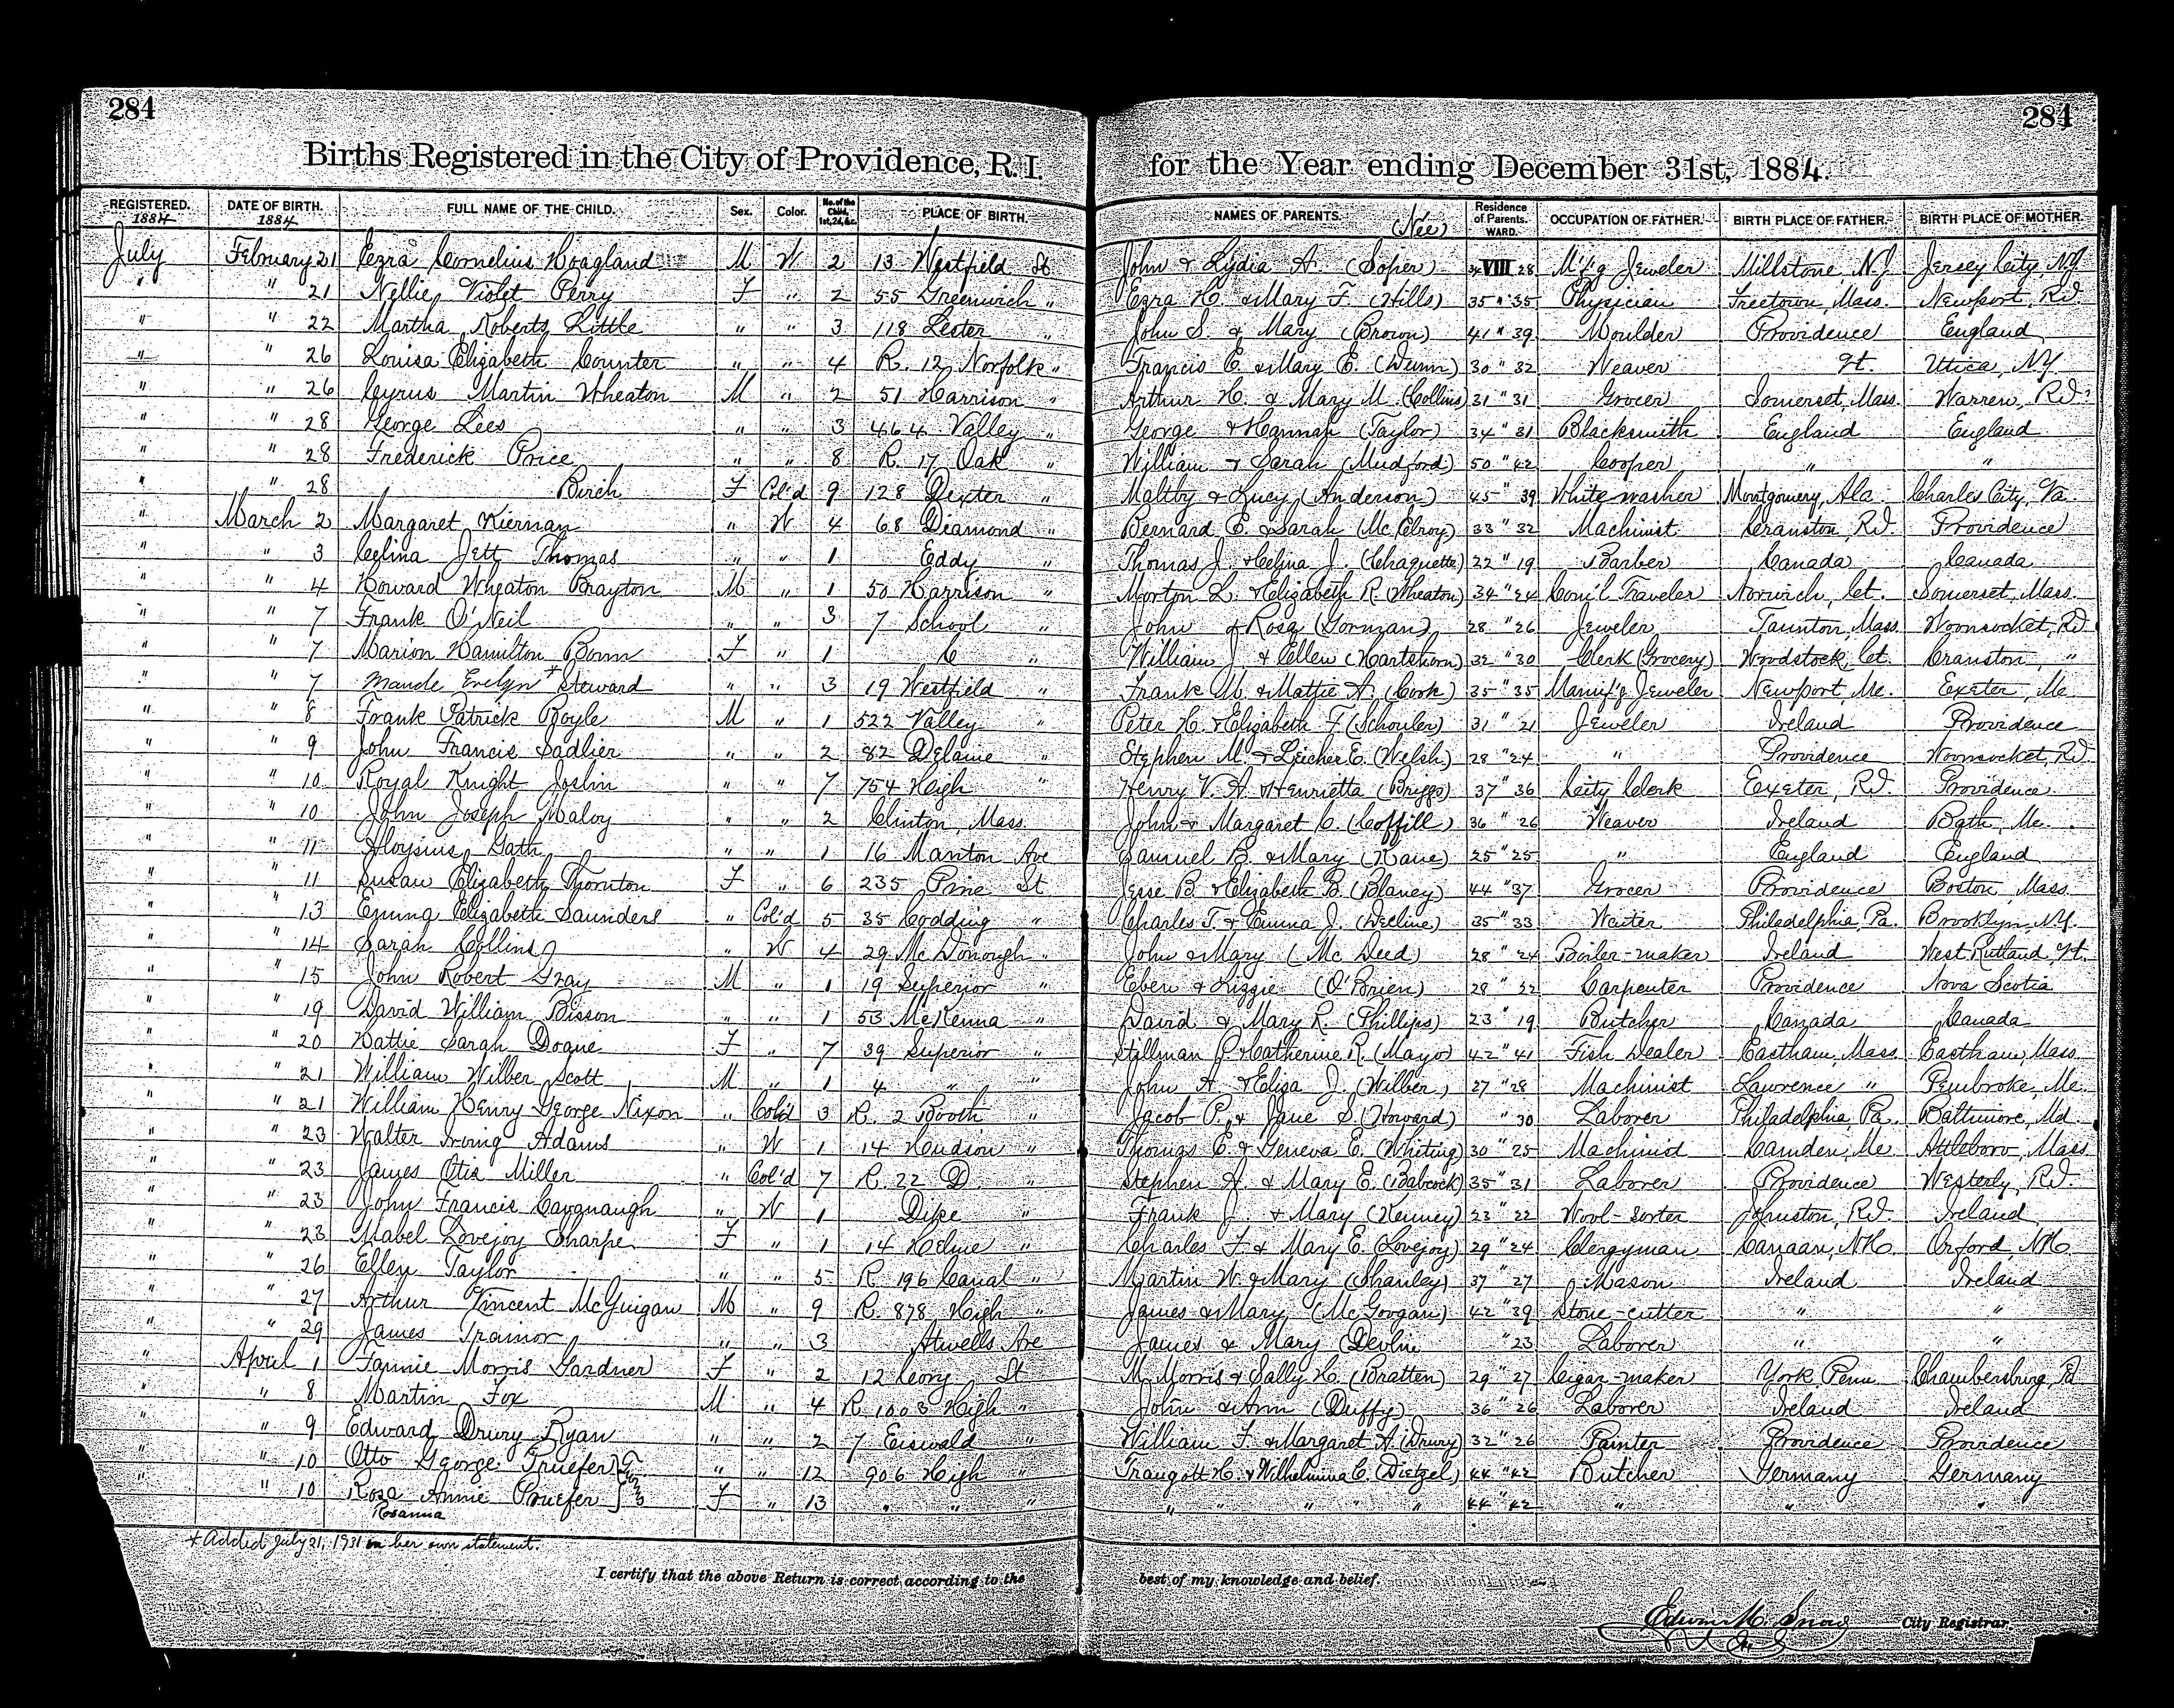 284 284
Births Registered in the City of Providence, R. I. for the Year ending December 31st, 1884.
REGISTERED. 1884 DATE OF BIRTH. 1884 FULL NAME OF THE CHILD. Sex. Color. No. of the Child, 1st, 2d, &c. PLACE OF BIRTH. NAMES OF PARENTS. (Née) Residence of Parents. WARD. OCCUPATION OF FATHER. BIRTH PLACE OF FATHER. BIRTH PLACE OF MOTHER.
July February 21 Ezra Cornelius Hoagland M W 2 13 Westfield St John & Lydia A. (Soper) 34 VIII 28 M'f'g Jeweler Millstone, N.J. Jersey City, N.J.
" " 21 Nellie Violet Perry F " 2 55 Greenwich " Ezra H. & Mary F. (Hills) 35 " 35 Physician Freetown, Mass. Newport, R.I.
" " 22 Martha Roberts Little " " 3 118 Lester " John S. & Mary (Brown) 41 " 39 Moulder Providence England
" " 26 Louisa Elizabeth Counter " " 4 R. 12 Norfolk " Francis E. & Mary E. (Dunn) 30 " 32 Weaver Vt. Utica, N.Y.
" " 26 Cyrus Martin Wheaton M " 2 51 Harrison " Arthur H. & Mary M. (Collins) 31 " 31 Grocer Somerset, Mass. Warren, R.I.
" " 28 George Lees " " 3 464 Valley " George & Hannah (Taylor) 34 " 31 Blacksmith England England
" " 28 Frederick Price " " 8 R. 17 Oak " William & Sarah (Mudford) 50 " 42 Cooper " "
" " 28 Birch F Col'd 9 128 Dexter " Maltby & Lucy (Anderson) 45 " 39 White washer Montgomery, Ala. Charles City, Va.
" March 2 Margaret Kiernan " W 4 68 Diamond " Bernard E. & Sarah (McElroy) 33 " 32 Machinist Cranston, R.I. Providence
" " 3 Celina Jett Thomas " " 1 Eddy " Thomas J. & Celina J. (Chaquette) 22 " 19 Barber Canada Canada
" " 4 Howard Wheaton Brayton M " 1 50 Harrison " Morton L. & Elizabeth R. (Wheaton) 34 " 24 Com'l Traveler Norwich, Ct. Somerset, Mass.
" " 7 Frank O'Neil " " 3 7 School " John & Rosa (Gorman) 28 " 26 Jeweler Taunton, Mass. Woonsocket, R.I.
" " 7 Marion Hamilton Bonn F " 1 C " William J. & Ellen (Hartshorn) 32 " 30 Clerk (Grocery) Woodstock, Ct. Cranston, "
" " 7 Maude Evelyn + Steward " " 3 19 Westfield " Frank M. & Mattie A. (Cook) 35 " 35 Manuf'g Jeweler Newport, Me. Exeter, Me.
" " 8 Frank Patrick Boyle M " 1 522 Valley " Peter H. & Elizabeth F. (Schouler) 31 " 21 Jeweler Ireland Providence
" " 9 John Francis Sadlier " " 2 82 Delaine " Stephen M. & E. (Welsh) 28 " 24 " Providence Woonsocket, R.I.
" " 10 Royal Knight Joslin " " 7 754 High " Henry V. A. & Henrietta (Briggs) 37 " 36 City Clerk Exeter, R.I. Providence
" " 10 John Joseph Maloy " " 2 Clinton, Mass. John & Margaret C. (Coffill) 36 " 26 Weaver Ireland Bath, Me.
" " 11 Aloysius Gath " " 1 16 Manton Ave Samuel B. & Mary (Kane) 25 " 25 " England England
" " 11 Susan Elizabeth Thornton F " 6 235 Pine St Jesse B. & Elizabeth B. (Blaney) 44 " 37 Grocer Providence Boston, Mass.
" " 13 Emma Elizabeth Saunders " Col'd 5 35 Codding " Charles T. & Emma J. (Decline) 35 " 33 Waiter Philadelphia, Pa. Brooklyn, N.Y.
" " 14 Sarah Collins " W 4 29 McDonough " John & Mary (McDeed) 28 " 24 Boiler-maker Ireland West Rutland, Vt.
" " 15 John Robert Gray M " 1 19 Superior " Eben & Lizzie (O'Brien) 28 " 32 Carpenter Providence Nova Scotia
" " 19 David William Bisson " " 1 53 McKenna " David & Mary R. (Phillips) 23 " 19 Butcher Canada Canada
" " 20 Hattie Sarah Doane F " 7 39 Superior " Stillman & Catherine R. (Mayo) 42 " 41 Fish Dealer Eastham, Mass. Eastham, Mass.
" " 21 William Wilber Scott M " 1 4 " " John A. & Eliza J. (Wilber) 27 " 28 Machinist Lawrence " Pembroke, Me.
" " 21 William Henry George Nixon " Col'd 3 R. 2 Booth " Jacob P. & Jane S. (Howard) " 30 Laborer Philadelphia, Pa. Baltimore, Md.
" " 23 Walter Irving Adams " W 1 14 Hudson " Thomas E. & Geneva E. (Whiting) 30 " 25 Machinist Camden, Me. Attleboro, Mass.
" " 23 James Otis Miller " Col'd 7 R. 22 D " Stephen A. & Mary E. (Babcock) 35 " 31 Laborer Providence Westerly, R.I.
" " 23 John Francis Cavanaugh " W 1 Dike " Frank J. & Mary (Kenney) 23 " 22 Wool-sorter Johnston, R.I. Ireland
" " 23 Mabel Lovejoy Sharpe F " 1 14 Helme " Charles F. & Mary E. (Lovejoy) 29 " 24 Clergyman Canaan, N.H. Orford, N.H.
" " 26 Ellen Taylor " " 5 R. 196 Canal " Martin W. & Mary (Shanley) 37 " 27 Mason Ireland Ireland
" " 27 Arthur Vincent McGuigan M " 9 R. 878 High " James & Mary (McGoogan) 42 " 39 Stone-cutter " "
" " 29 James Trainor " " 3 Atwells Ave James & Mary (Devlin " 23 Laborer " "
" April 1 Fannie Morris Gardner F " 2 12 Cory St M. Morris & Sally H. (Bratten) 29 " 27 Cigar-maker York Penn. Chambersburg, Pa
" " 8 Martin Fox M " 4 R. 1003 High " John & Ann (Duffy) 36 " 26 Laborer Ireland Ireland
" " 9 Edward Drury Ryan " " 2 7 Eiswald " William F. & Margaret A. (Drury) 32 " 26 Painter Providence Providence
" " 10 Otto George Pruefer } Twins " " 12 906 High " Traugott H. & Wilhelmina C. (Dietzel) 44 " 42 Butcher Germany Germany
" " 10 Rosa Annie Pruefer F " 13 " " " " " " " " 44 " 42 " " "
Rosanna
+ Added July 21, 1931 on her own statement.
I certify that the above Return is correct according to the best of my knowledge and belief.
Edwin M. Snow City Registrar